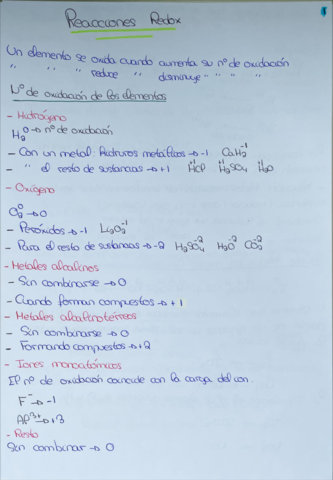 Reacciones Redox
Un elemento se oxida cuando aumenta su nº de oxidación
" " " reduce " disminuye " " " "
Nº de oxidación de los elementos
- Hidrógeno
H₂⁰ → nº de oxidación
- Con un metal: Hidruros metálicos → -1 CaH₂⁻¹
- " el resto de sustancias → +1 H⁺¹Cl H₂⁺¹SO₄ H₂⁺¹O
- Oxígeno
O₂⁰ → 0
- Peróxidos → -1 Li₂O₂⁻¹
- Para el resto de sustancias → -2 H₂SO₄⁻² H₂O⁻² CO₂⁻²
- Metales alcalinos
- Sin combinarse → 0
- Cuando forman compuestos → +1
- Metales alcalinotérreos
- Sin combinarse → 0
- Formando compuestos → +2
- Iones monoatómicos
El nº de oxidación coincide con la carga del ion.
F⁻ → -1
Al³⁺ → +3
- Resto
Sin combinar → 0